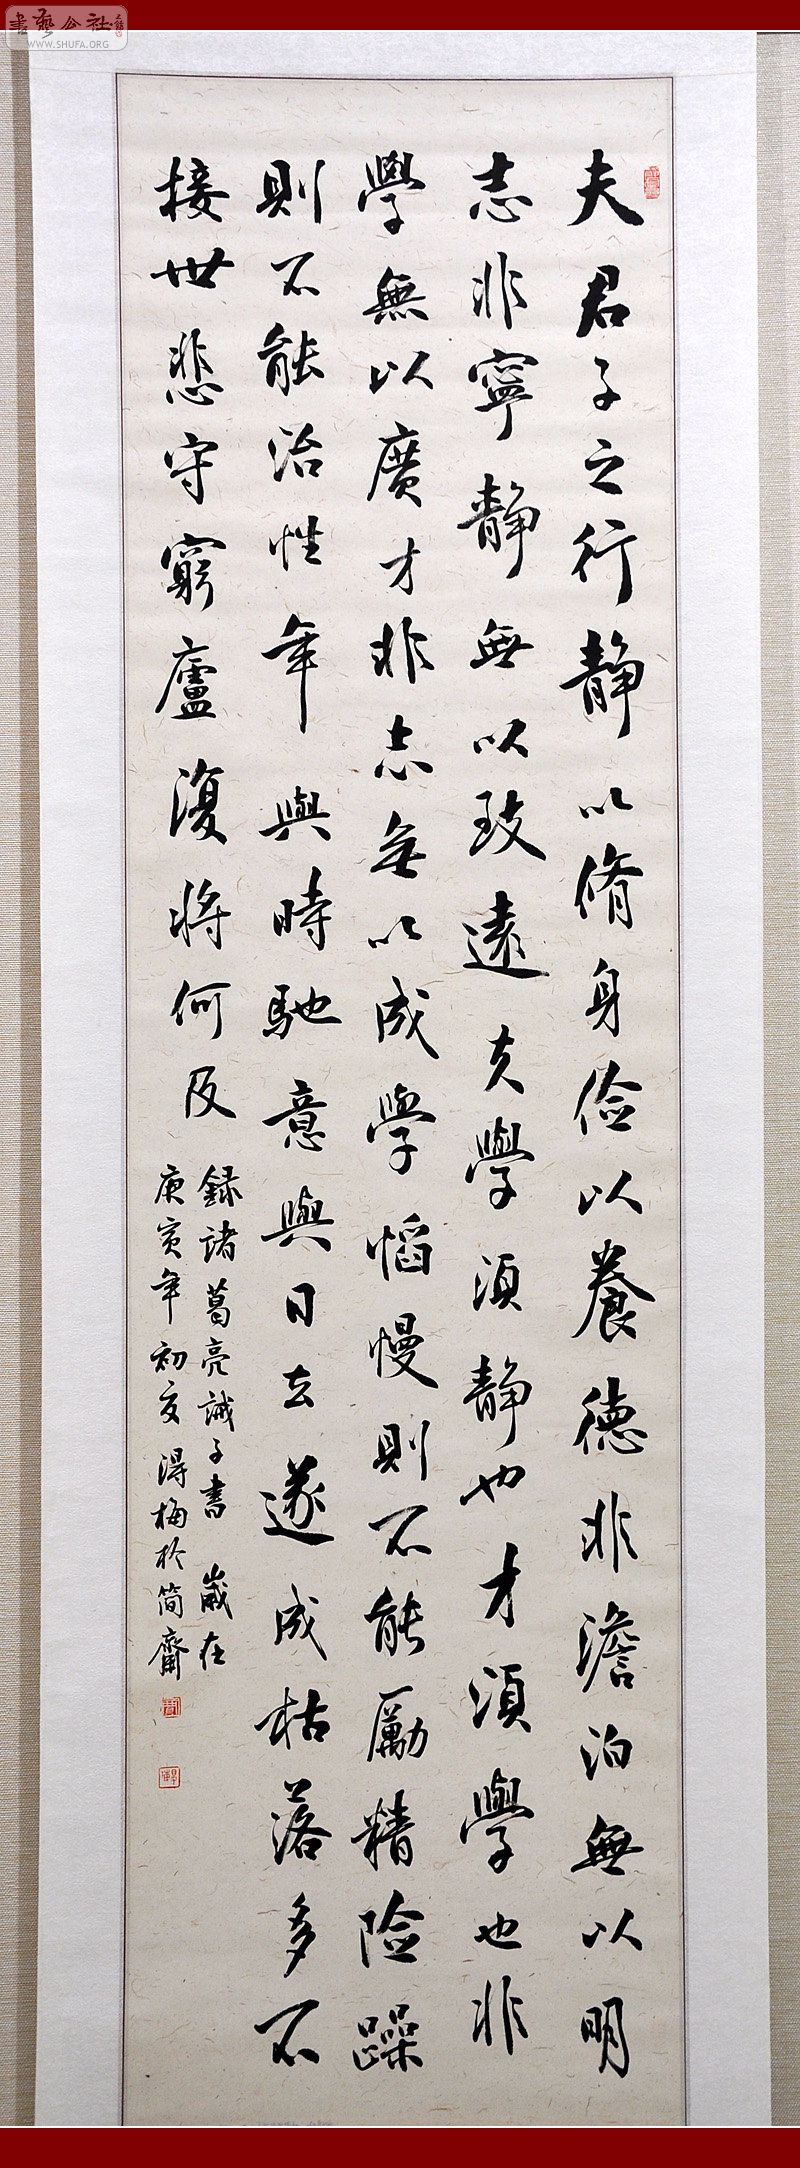 夫君子之行静以脩身俭以養德非澹泊無以明
志非寧静無以致遠夫學須静也才須學也非
學無以廣才非志無以成學慆慢則不能勵精險躁
則不能治性年與時馳意與日去遂成枯落多不
接世悲守窮廬復將何及
録諸葛亮誡子書 歲在
庚寅年初夏 得梅於简齋
書藝公社
WWW.SHUFA.ORG